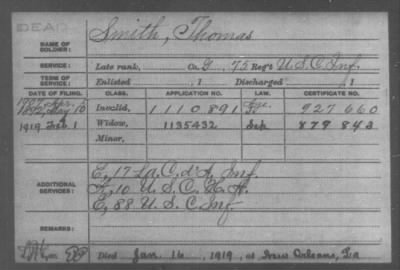 DEAD
NAME OF SOLDIER: Smith, Thomas
SERVICE: Late rank, Co. G, 75 Reg't U.S.C. Inf.
TERM OF SERVICE: Enlisted , 1 Discharged , 1
DATE OF FILING. CLASS. APPLICATION NO. LAW. CERTIFICATE NO.
1892 May 10 Invalid, 1110891 927660
1919 Feb 1 Widow, 1135432 Sep 879843
Minor,
ADDITIONAL SERVICES: E, 17 La. C. d'A. Inf.
F, 10 U.S.C. H.A.
E, 88 U.S.C. Inf
REMARKS:
Died Jan. 16, 1919, at New Orleans, La